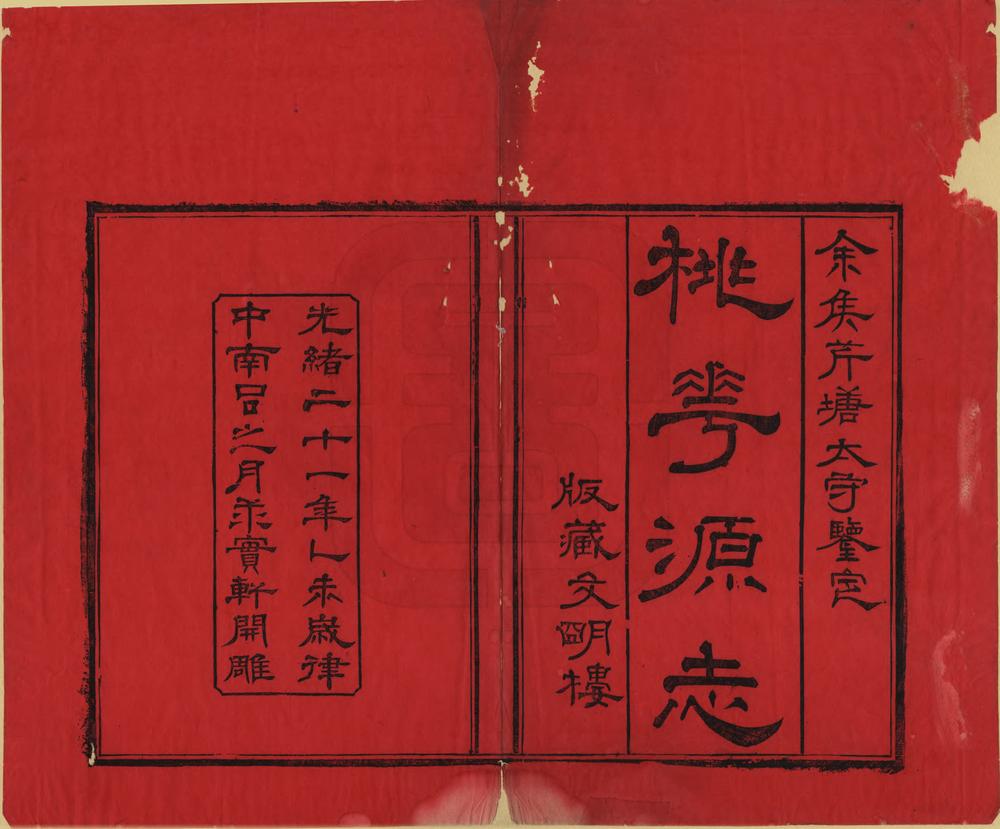 余矦芹塘太守鑒定
桃華源志
版藏文朙樓
光緒二十一年乙未歲律
中南呂之月求實軒開雕